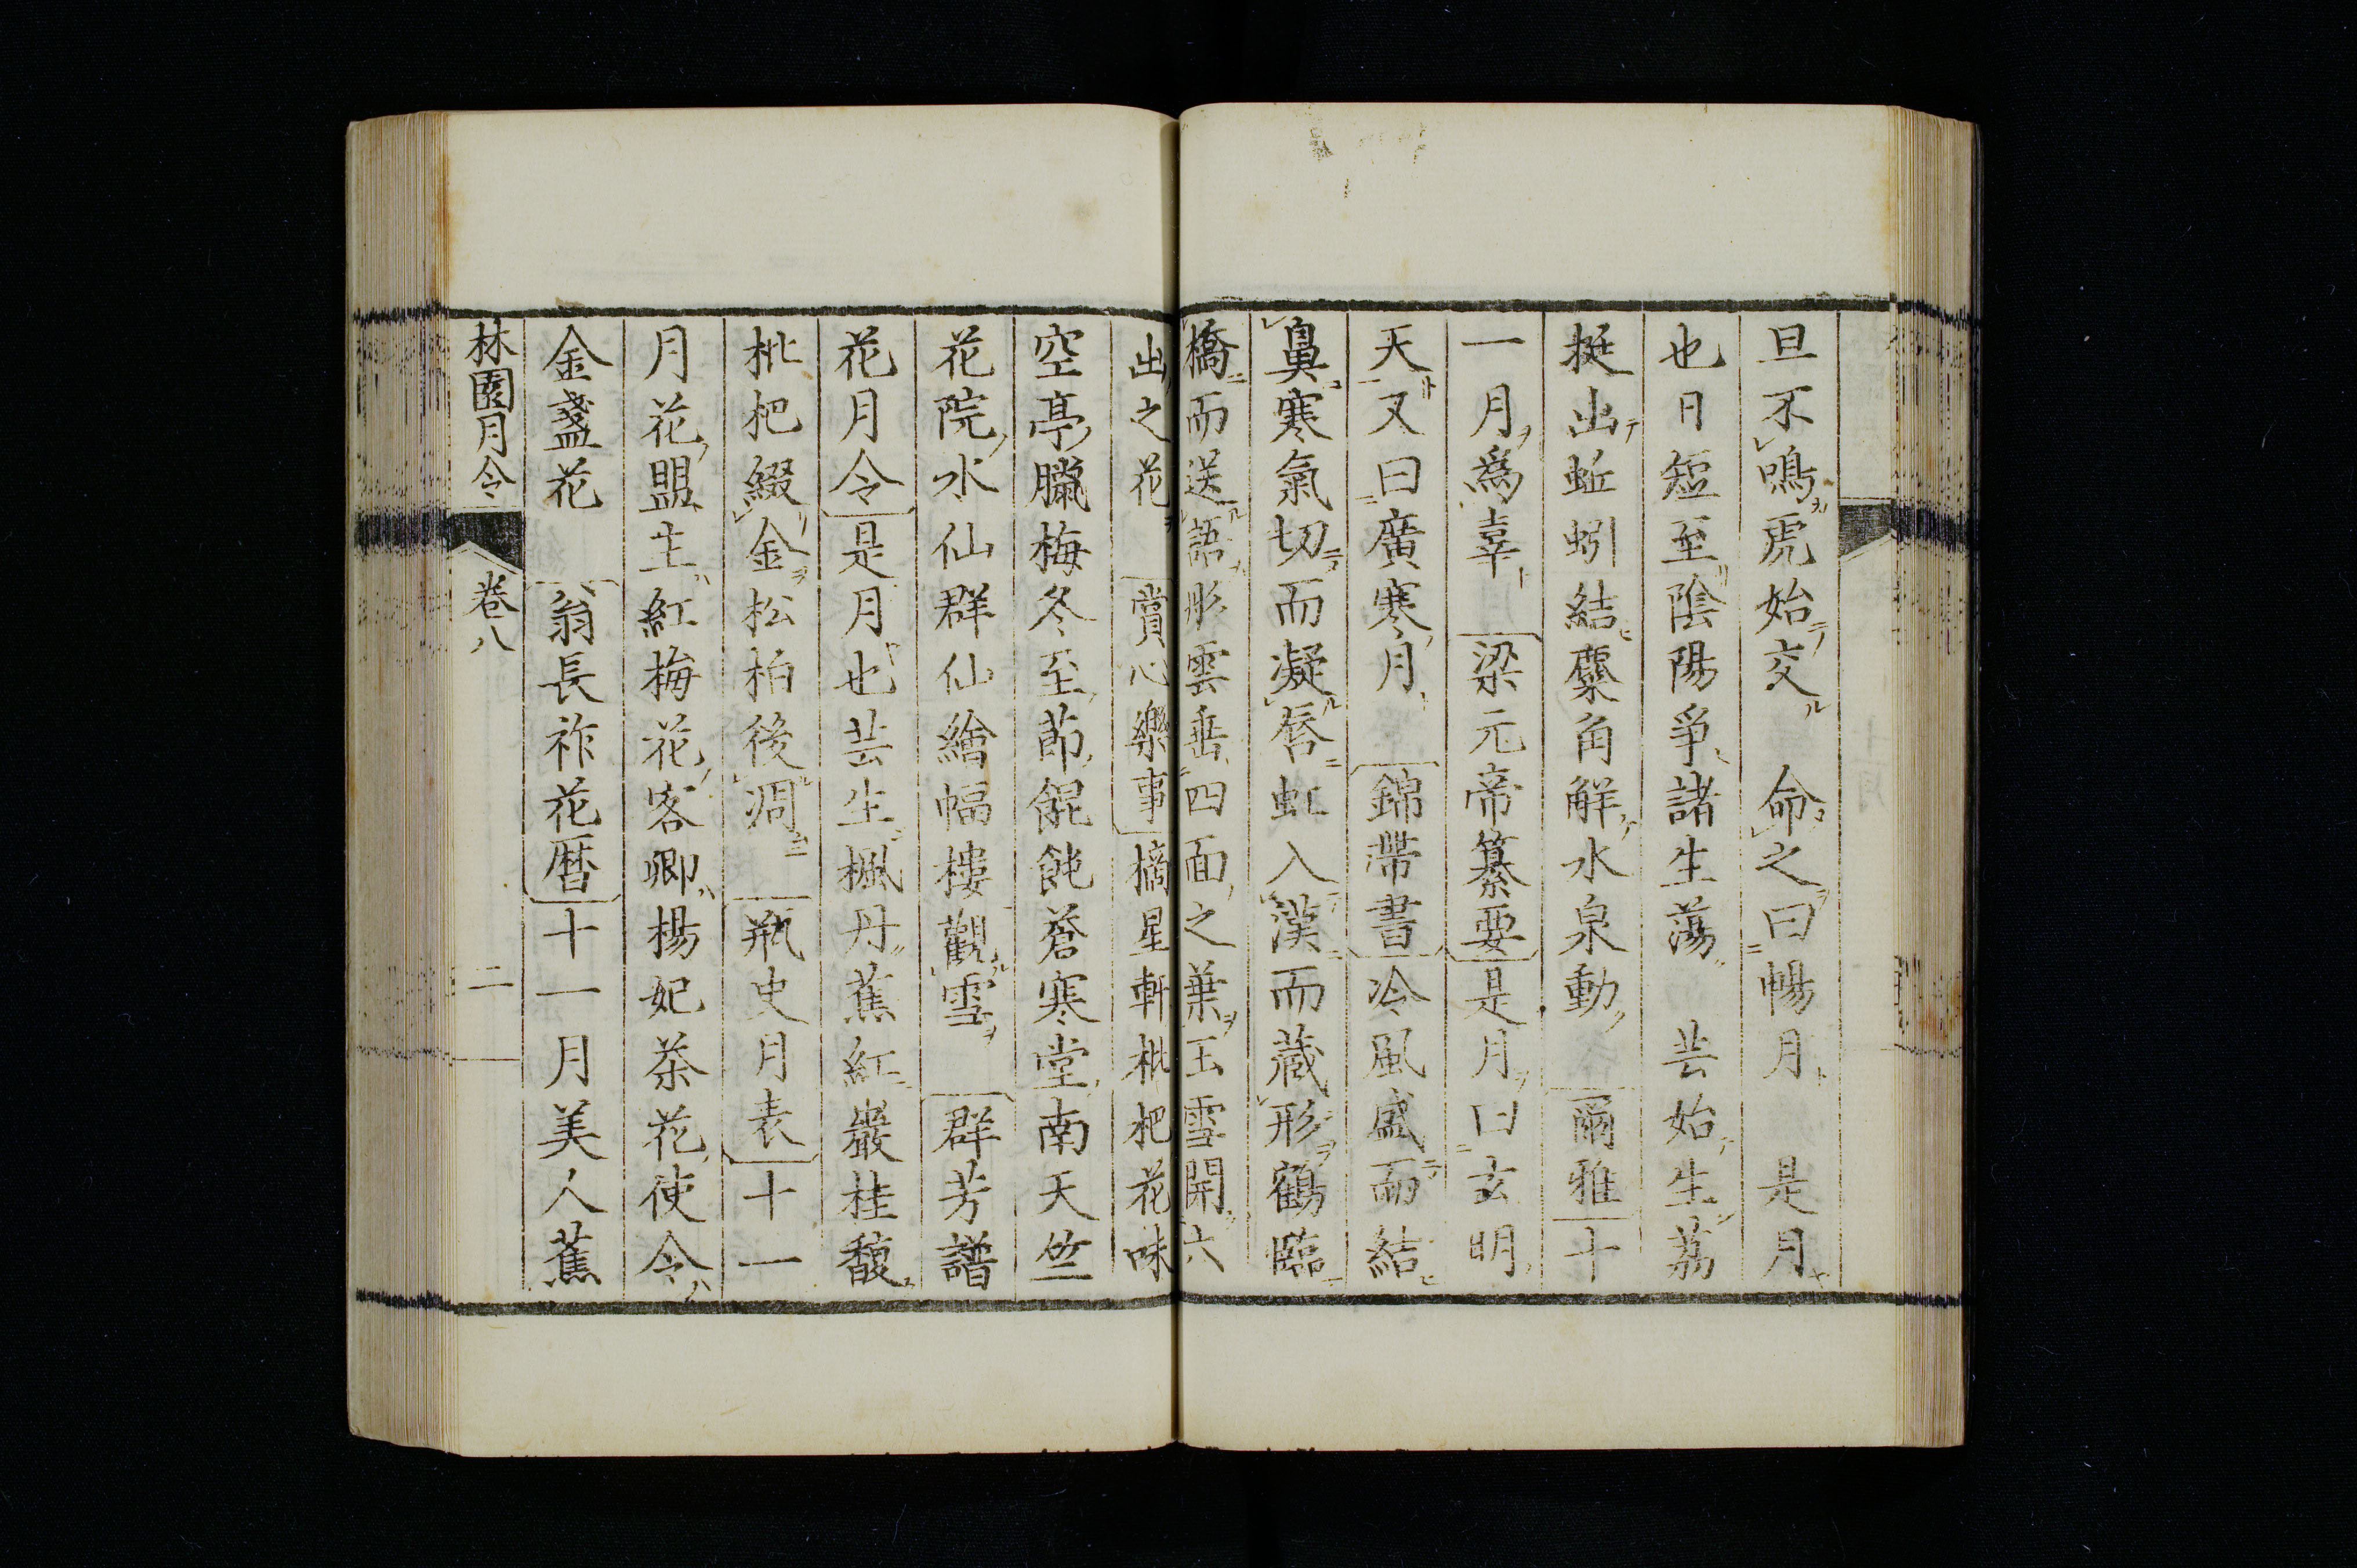 旦不鳴虎始交 命之曰暢月 是月
也日短至陰陽爭諸生蕩 芸始生荔
挺出蚯蚓結麋角解水泉動 爾雅十
一月爲辜 梁元帝纂要是月曰玄明
天又曰廣寒月 錦帶書冷風盛而結
鼻寒氣切而凝唇虹入漢而藏形鶴臨
橋而送語彤雲垂四面之葉玉雪開六
出之花 賞心樂事摘星軒枇杷花味
空亭臘梅冬至節餛飩蒼寒堂南天竺
花院水仙群仙繪幅樓觀雪 群芳譜
花月令是月也芸生楓丹蕉紅巖桂馥
枇杷綴金松柏後凋 瓶史月表十一
月花盟主紅梅花客卿楊妃茶花使令
金盞花 翁長祚花曆十一月美人蕉
林園月令 卷八 二